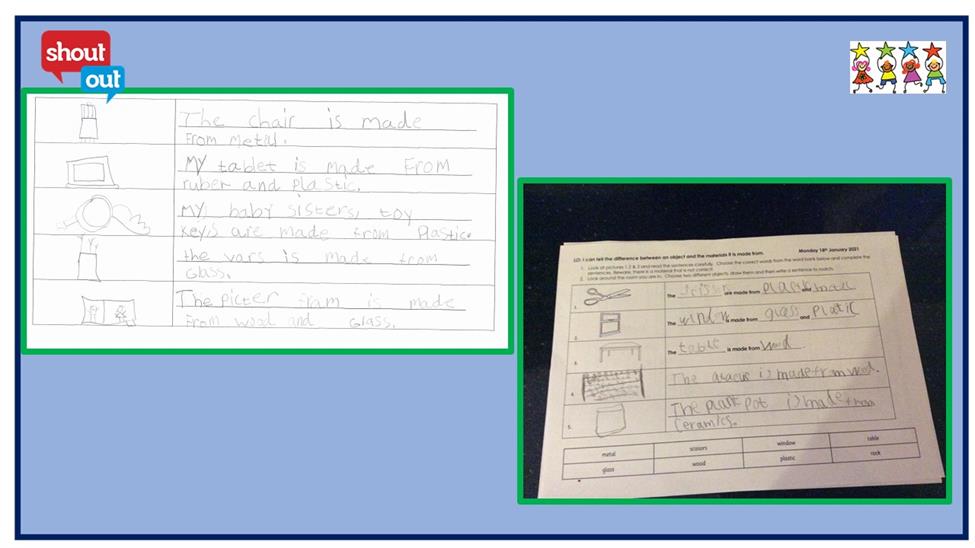 shout
out
The chair is made
From metal.
My tablet is made From
ruber and plastic.
My baby sisters, toy
keys are made from Plastic.
the vars is made from
Glass.
The picter fram is made
From wood and Glass.
Monday 18th January 2021
LO: I can tell the difference between an object and the materials it is made from.
1. Look at pictures 1, 2 & 3 and read the sentences carefully. Choose the correct words from the word bank below and complete the
sentences. Beware, there is a material that is not correct.
2. Look around the room you are in. Choose two different objects, draw them and then write a sentence to match.
1. The are made from and
2. The window is made from glass and Platic
3. The table is made from wood.
4. The is made from wood.
5. The pot is made from
Ceramics.
metal scissors window table
glass wood plastic rock